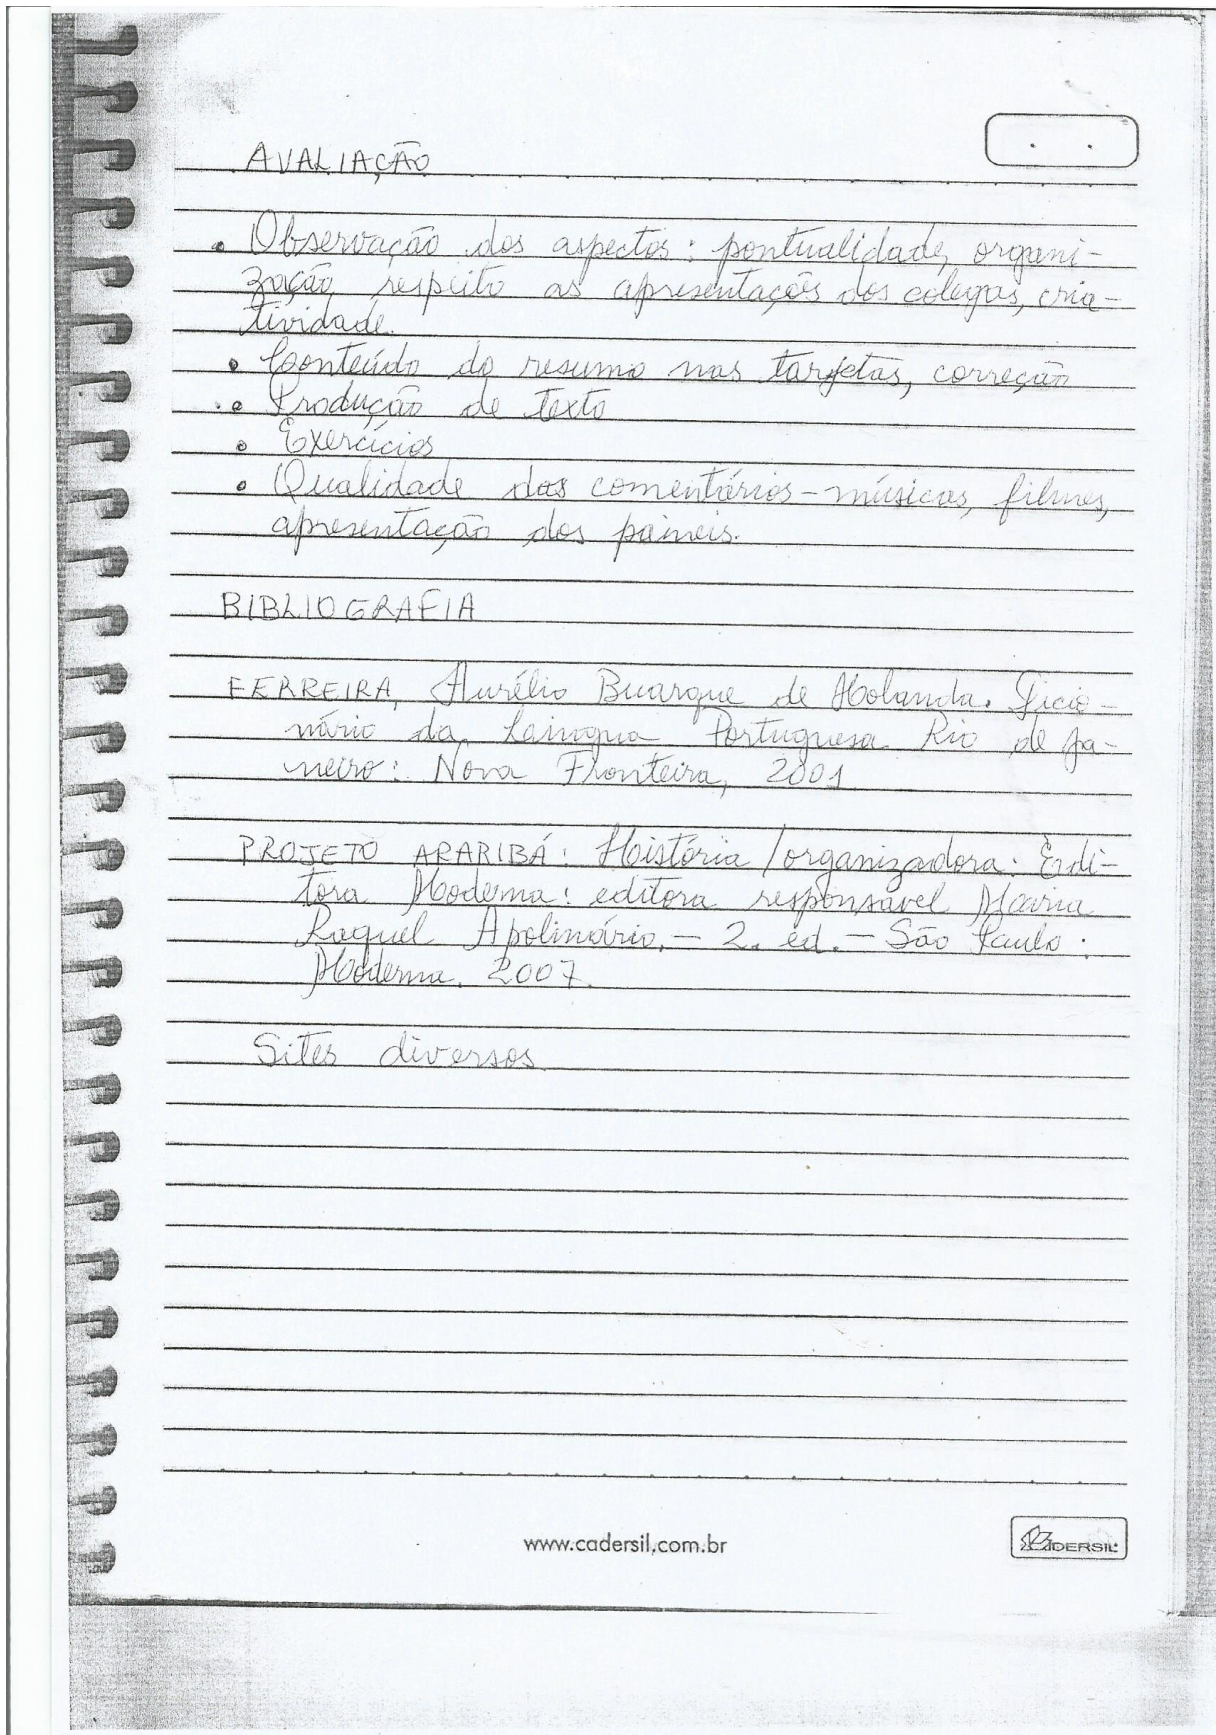 AVALIAÇÃO
• Observação dos aspectos: pontualidade, organi-
zação, respeito as apresentações dos colegas, cria-
tividade.
• Conteúdo do resumo nas tarjetas, correção
• Produção de texto
• Exercícios
• Qualidade dos comentários - músicas, filmes,
apresentação dos paineis.
BIBLIOGRAFIA
FERREIRA, Aurélio Buarque de Holanda. Dicio-
nário da Língua Portuguesa Rio de Ja-
neiro: Nova Fronteira, 2001
PROJETO ARARIBÁ: História / organizadora: Edi-
tora Moderna: editora responsável Maria
Raquel Apolinário. - 2. ed. - São Paulo:
Moderna. 2007.
Sites diversos
www.cadersil.com.br
CADERSIL